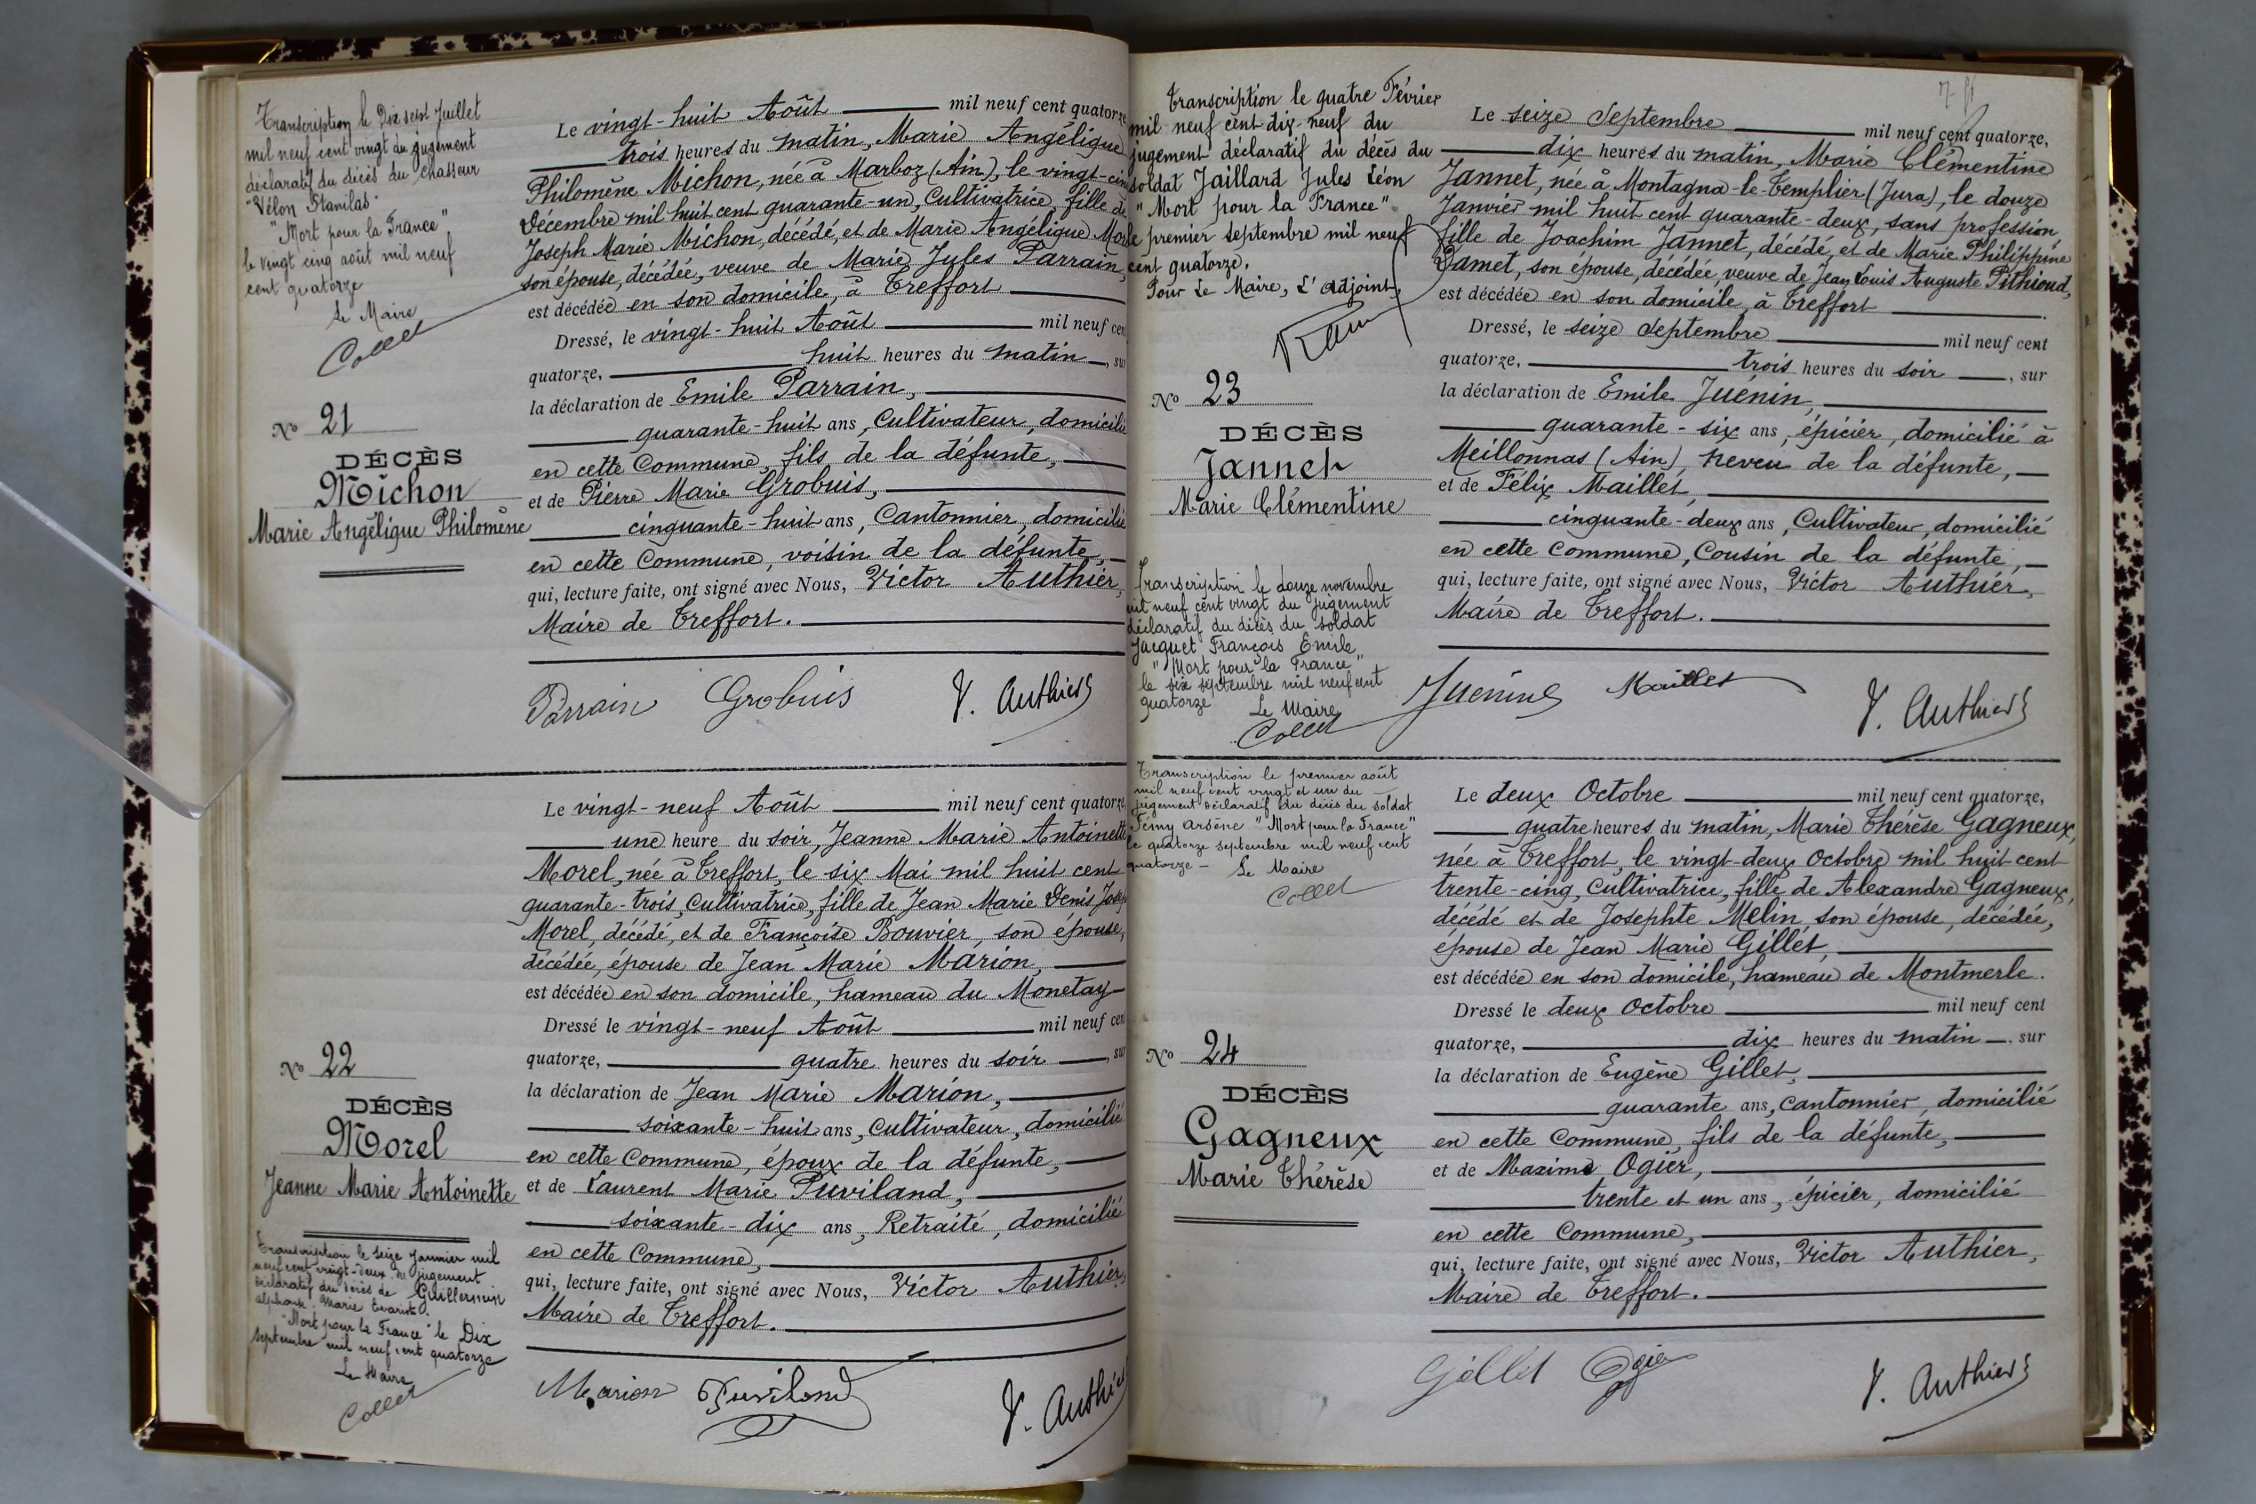 Transcription le Dix sept Juillet
mil neuf cent vingt du jugement
déclaratif du décès du chasseur
"Vélon Stanilas"
"Mort pour la France"
le vingt cinq août mil neuf
cent quatorze
Le Maire
Collet
No 21
DÉCÈS
Michon
Marie Angélique Philomène
Le vingt-huit Août mil neuf cent quatorze
trois heures du matin, Marie Angélique
Philomène Michon, née à Marboz (Ain), le vingt-cinq
Décembre mil huit cent quarante-un, Cultivatrice, fille de
Joseph Marie Michon, décédé, et de Marie Angélique
son épouse, décédée, veuve de Marie Jules Parrain,
est décédée en son domicile, à Treffort
Dressé, le vingt-huit Août mil neuf cen
quatorze, huit heures du matin, sur
la déclaration de Emile Parrain,
quarante-huit ans, Cultivateur, domicilié
en cette Commune, fils de la défunte,
et de Pierre Marie Grobuis,
cinquante-huit ans, Cantonnier, domicilié
en cette Commune, voisin de la défunte,
qui, lecture faite, ont signé avec Nous, Victor Authier,
Maire de Treffort.
Parrain Grobuis V. Authier
Le vingt-neuf Août mil neuf cent quatorze,
une heure du soir, Jeanne Marie Antoinette
Morel, née à Treffort, le six Mai mil huit cent
quarante-trois, Cultivatrice, fille de Jean Marie Denis Joseph
Morel, décédé, et de Françoise Bouvier, son épouse,
décédée, épouse de Jean Marie Marion,
est décédée en son domicile, hameau du Monetay
Dressé le vingt-neuf Août mil neuf cen
quatorze, quatre heures du soir, sur
la déclaration de Jean Marie Marion,
soixante-huit ans, Cultivateur, domicilié
en cette Commune, époux de la défunte,
et de Laurent Marie Puviland,
soixante-dix ans, Retraité, domicilié
en cette Commune,
qui, lecture faite, ont signé avec Nous, Victor Authier,
Maire de Treffort.
Marion Puviland V. Authier
No 22
DÉCÈS
Morel
Jeanne Marie Antoinette
Transcription le seize Janvier mil
neuf cent vingt-deux du jugement
déclaratif du décès de Guillermin
Alphonse Marie Evariste.
"Mort pour la France" le Dix
septembre mil neuf cent quatorze
Le Maire
Collet
Transcription le quatre Février
mil neuf cent dix-neuf du
jugement déclaratif du décès du
soldat Jaillard Jules Léon
"Mort pour la France"
le premier septembre mil neuf
cent quatorze.
Pour Le Maire, L'adjoint,
No 23
DÉCÈS
Jannet
Marie Clémentine
Le seize Septembre mil neuf cent quatorze,
dix heures du matin, Marie Clémentine
Jannet, née à Montagna-le-Templier (Jura), le douze
Janvier mil huit cent quarante-deux, sans profession
fille de Joachim Jannet, décédé, et de Marie Philippine
Damet, son épouse, décédée, veuve de Jean Louis Auguste Pithioud,
est décédée en son domicile, à Treffort.
Dressé, le seize Septembre mil neuf cent
quatorze, trois heures du soir, sur
la déclaration de Emile Juénin,
quarante-six ans, épicier, domicilié à
Meillonnas (Ain), neveu de la défunte,
et de Félix Maillet,
cinquante-deux ans, Cultivateur, domicilié
en cette Commune, Cousin de la défunte,
qui, lecture faite, ont signé avec Nous, Victor Authier,
Maire de Treffort.
Juenin Maillet V. Authier
Transcription le douze novembre
mil neuf cent vingt du jugement
déclaratif du décès du soldat
Jacquet François Emile
"Mort pour la France"
le six septembre mil neuf cent
quatorze Le Maire
Collet
Transcription le premier août
mil neuf cent vingt et un du
jugement déclaratif du décès du soldat
Arsène "Mort pour la France"
le quatorze septembre mil neuf cent
quatorze - Le Maire
Collet
No 24
DÉCÈS
Gagneux
Marie Thérèse
Le deux Octobre mil neuf cent quatorze,
quatre heures du matin, Marie Thérèse Gagneux,
née à Treffort, le vingt-deux Octobre mil huit cent
trente-cinq, Cultivatrice, fille de Alexandre Gagneux,
décédé et de Josephte Melin, son épouse, décédée,
épouse de Jean Marie Gillet,
est décédée en son domicile, hameau de Montmerle.
Dressé le deux Octobre mil neuf cent
quatorze, dix heures du matin, sur
la déclaration de Eugène Gillet,
quarante ans, Cantonnier, domicilié
en cette Commune, fils de la défunte,
et de Maxime Ogier,
trente et un ans, épicier, domicilié
en cette Commune,
qui, lecture faite, ont signé avec Nous, Victor Authier,
Maire de Treffort.
Gillet Ogier V. Authier